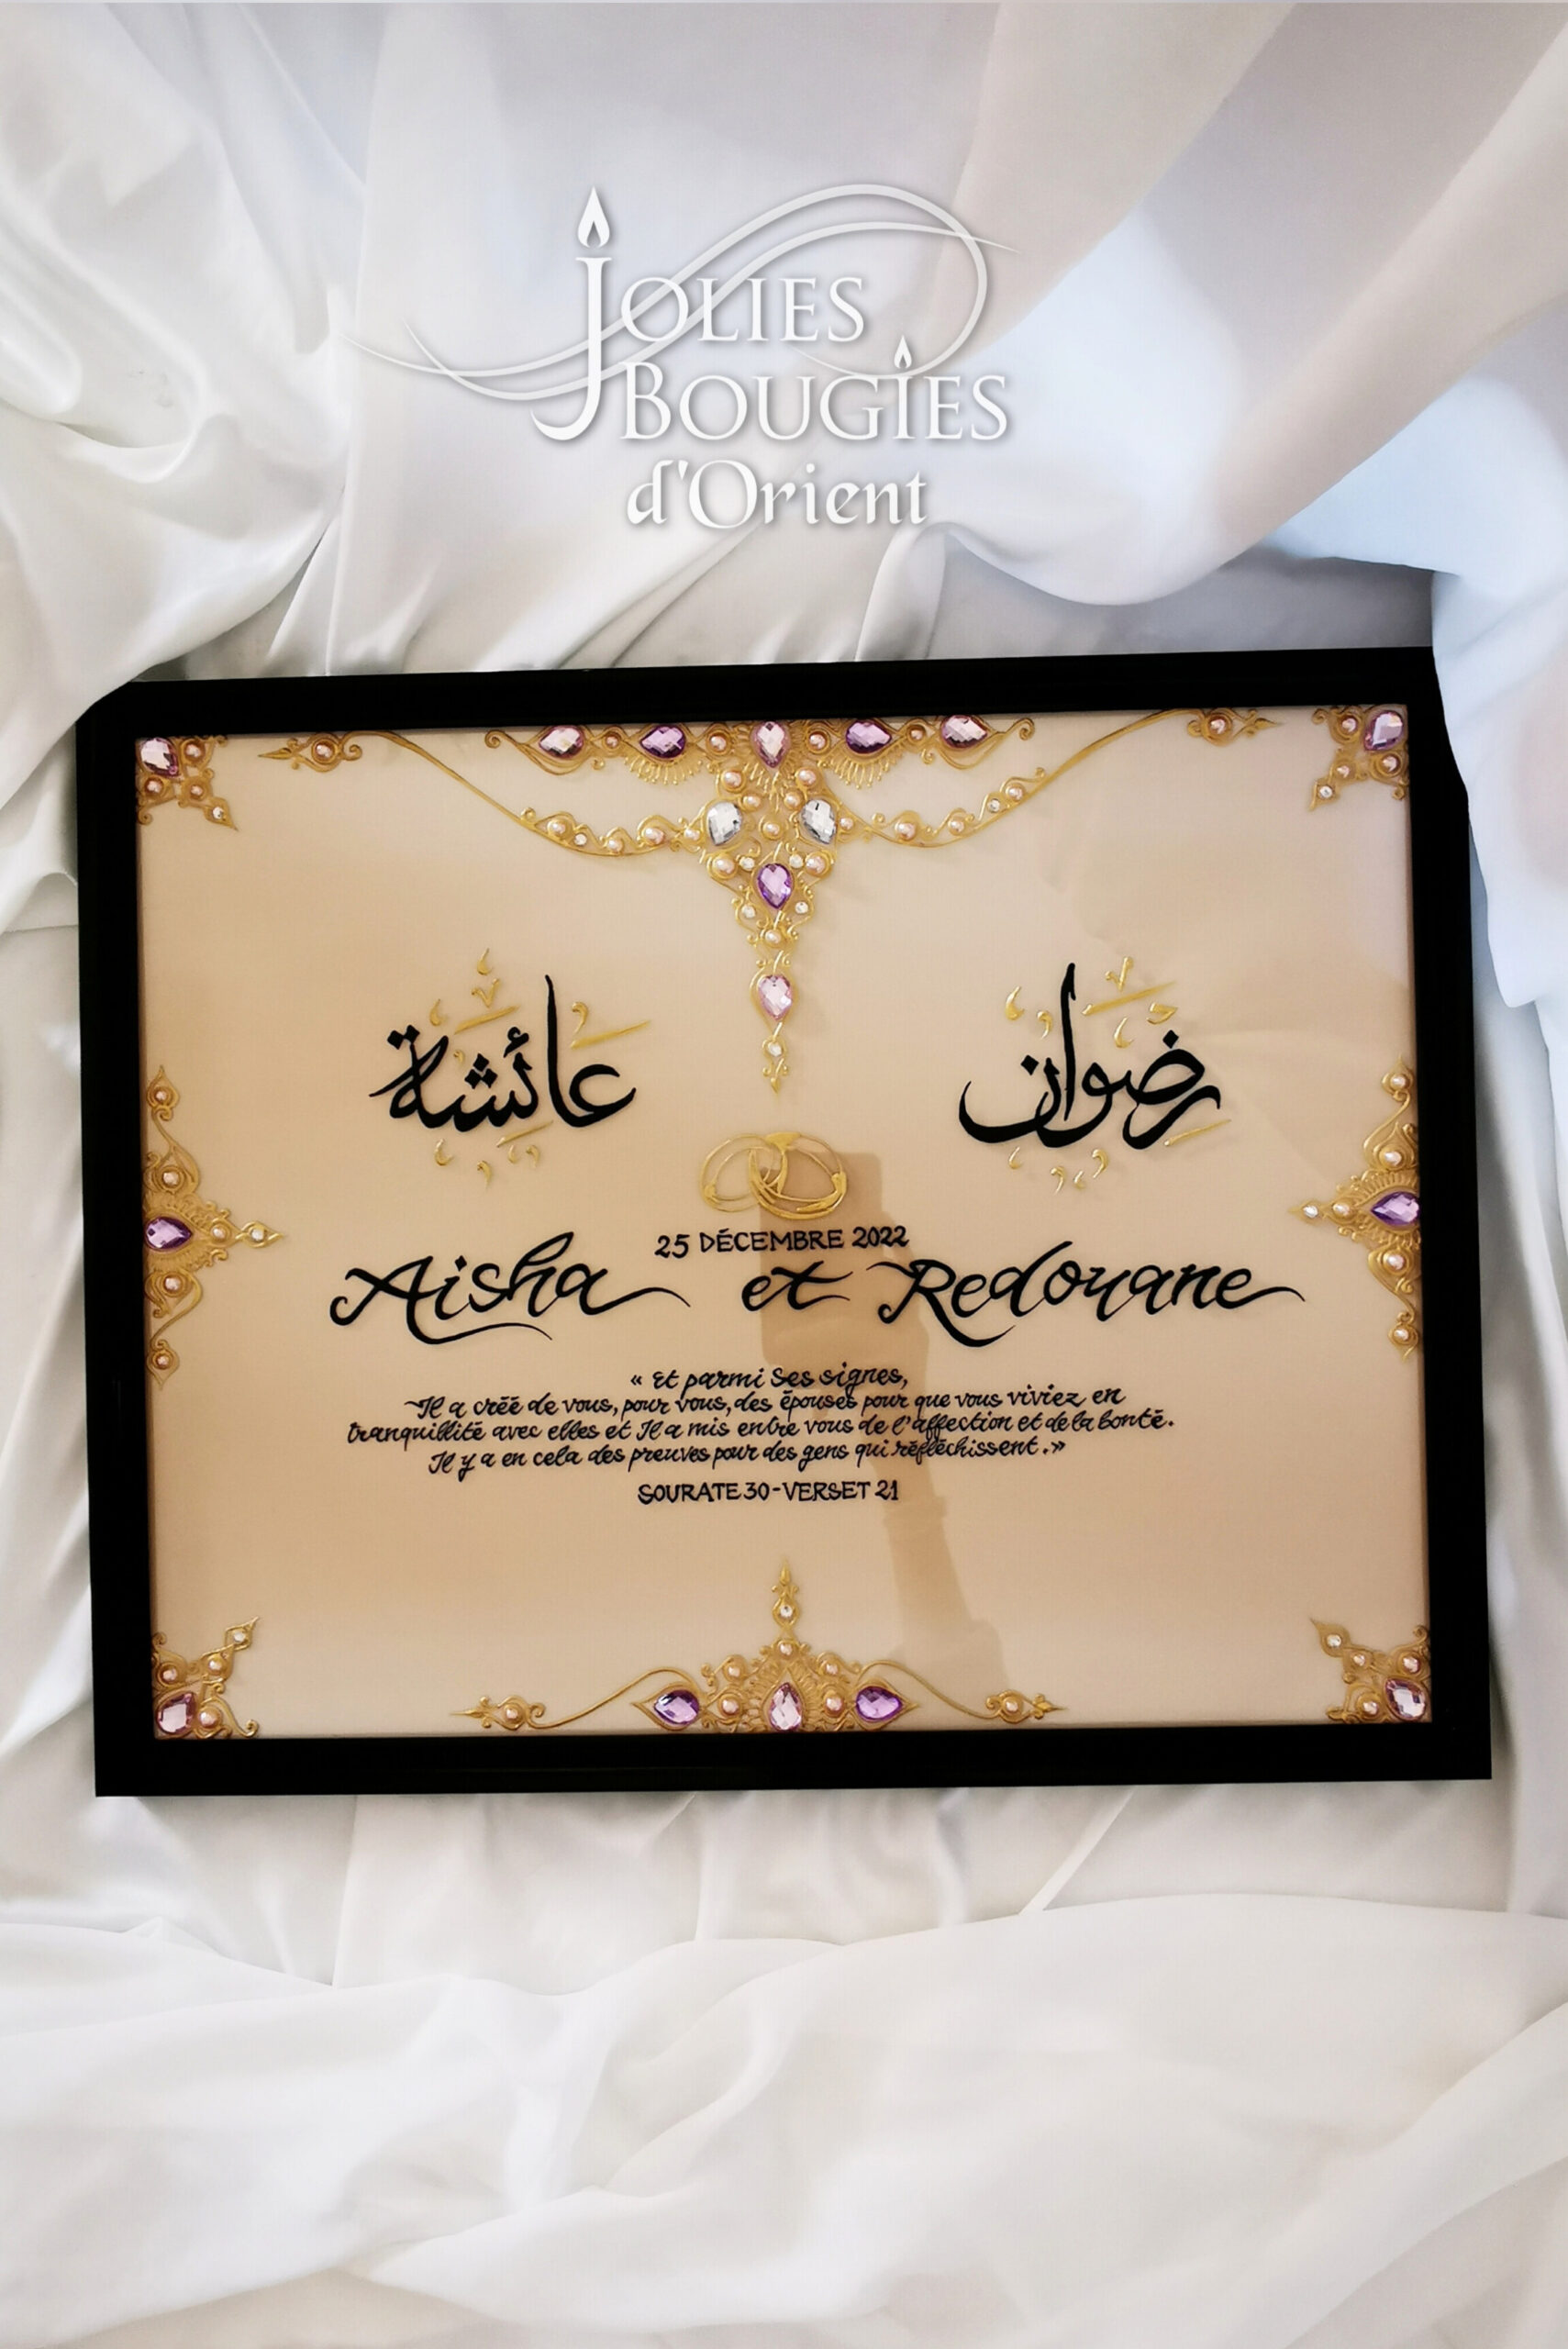 Jolies
Bougies
d'Orient
عائشة
رضوان
25 DÉCEMBRE 2022
Aisha et Redouane
« Et parmi Ses signes,
Il a créé de vous, pour vous, des épouses pour que vous viviez en
tranquillité avec elles et Il a mis entre vous de l'affection et de la bonté.
Il y a en cela des preuves pour des gens qui réfléchissent. »
SOURATE 30 - VERSET 21